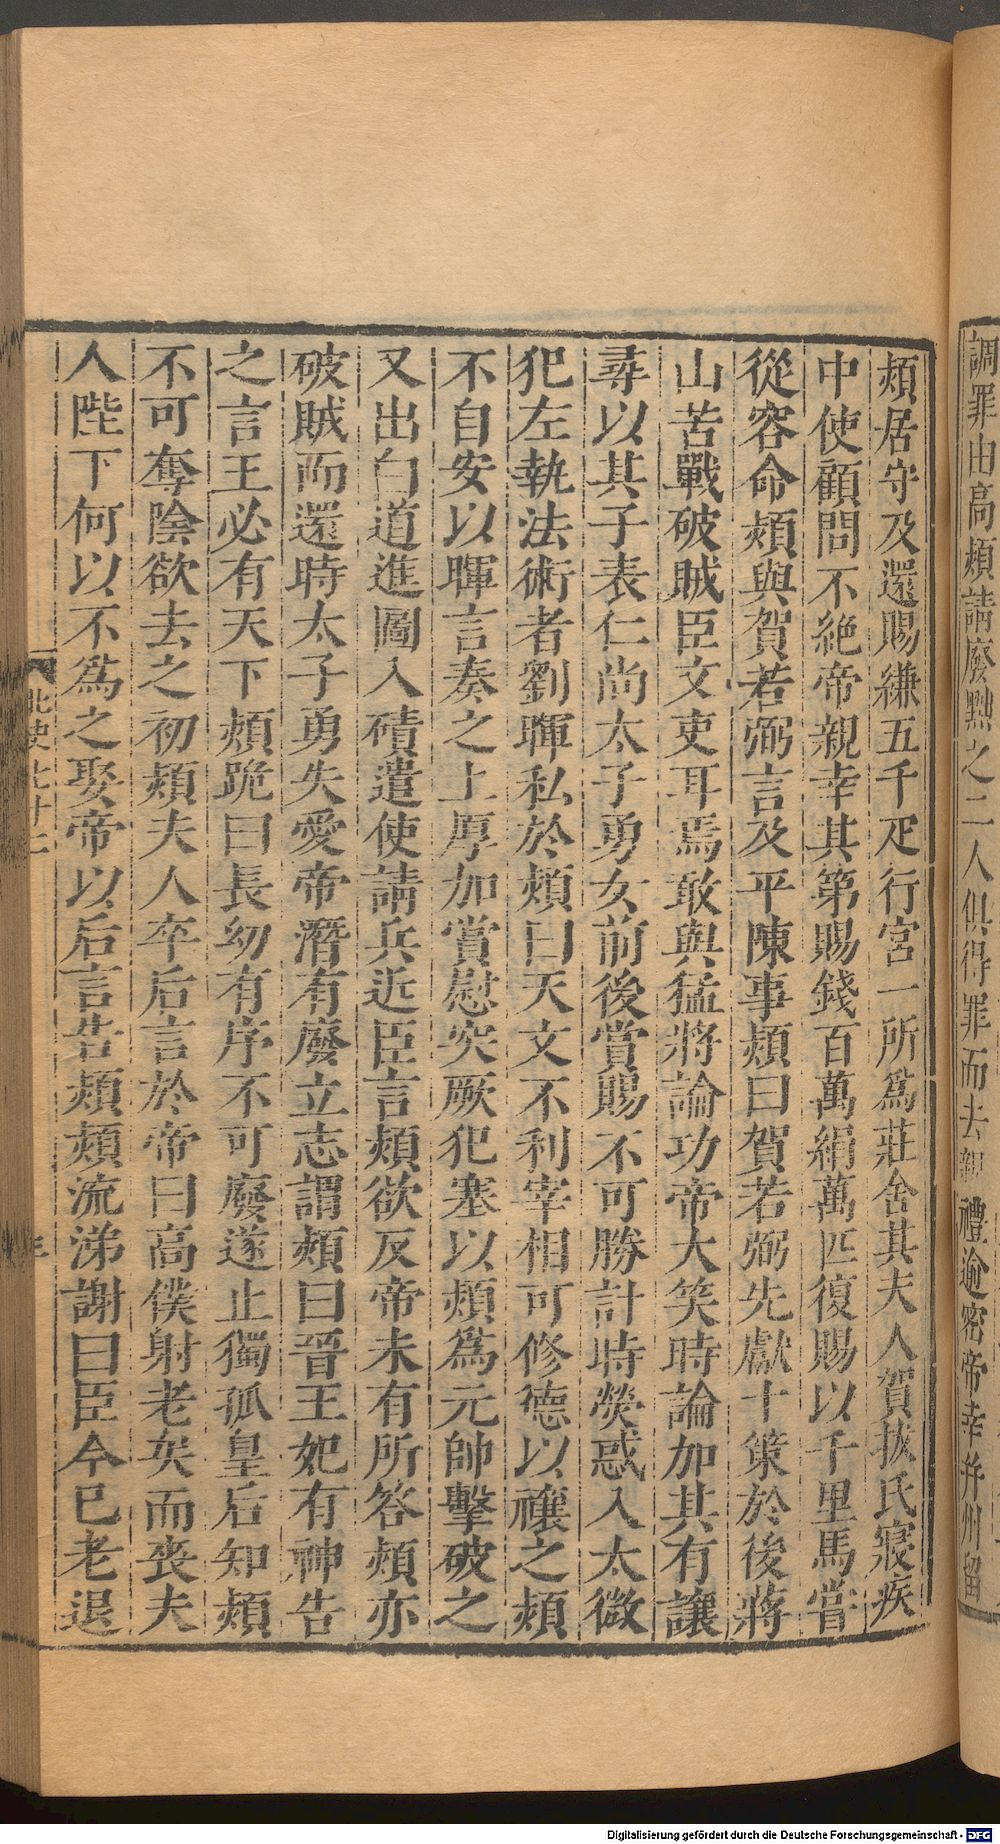 調罪由高熲請廢黜之二人俱得罪而去親禮逾密帝幸幷州留
熲居守及還賜縑五千疋行宮一所爲莊舍其夫人賀拔氏寢疾
中使顧問不絶帝親幸其第賜錢百萬絹萬匹復賜以千里馬嘗
從容命熲與賀若弼言及平陳事熲曰賀若弼先獻十策於後蔣
山苦戰破賊臣文吏耳焉敢與猛將論功帝大笑時論加其有讓
尋以其子表仁尚太子勇女前後賞賜不可勝計時熒惑入太微
犯左執法術者劉暉私於熲曰天文不利宰相可修德以禳之熲
不自安以暉言奏之上厚加賞慰突厥犯塞以熲爲元帥擊破之
又出白道進圖入磧遣使請兵近臣言熲欲反帝未有所答熲亦
破賊而還時太子勇失愛帝潛有廢立志謂熲曰晉王妃有神告
之言王必有天下熲跪曰長幼有序不可廢遂止獨孤皇后知熲
不可奪陰欲去之初熲夫人卒后言於帝曰高僕射老矣而喪夫
人陛下何以不爲之娶帝以后言告熲熲流涕謝曰臣今已老退
北史七十二
Digitalisierung gefördert durch die Deutsche Forschungsgemeinschaft - DFG